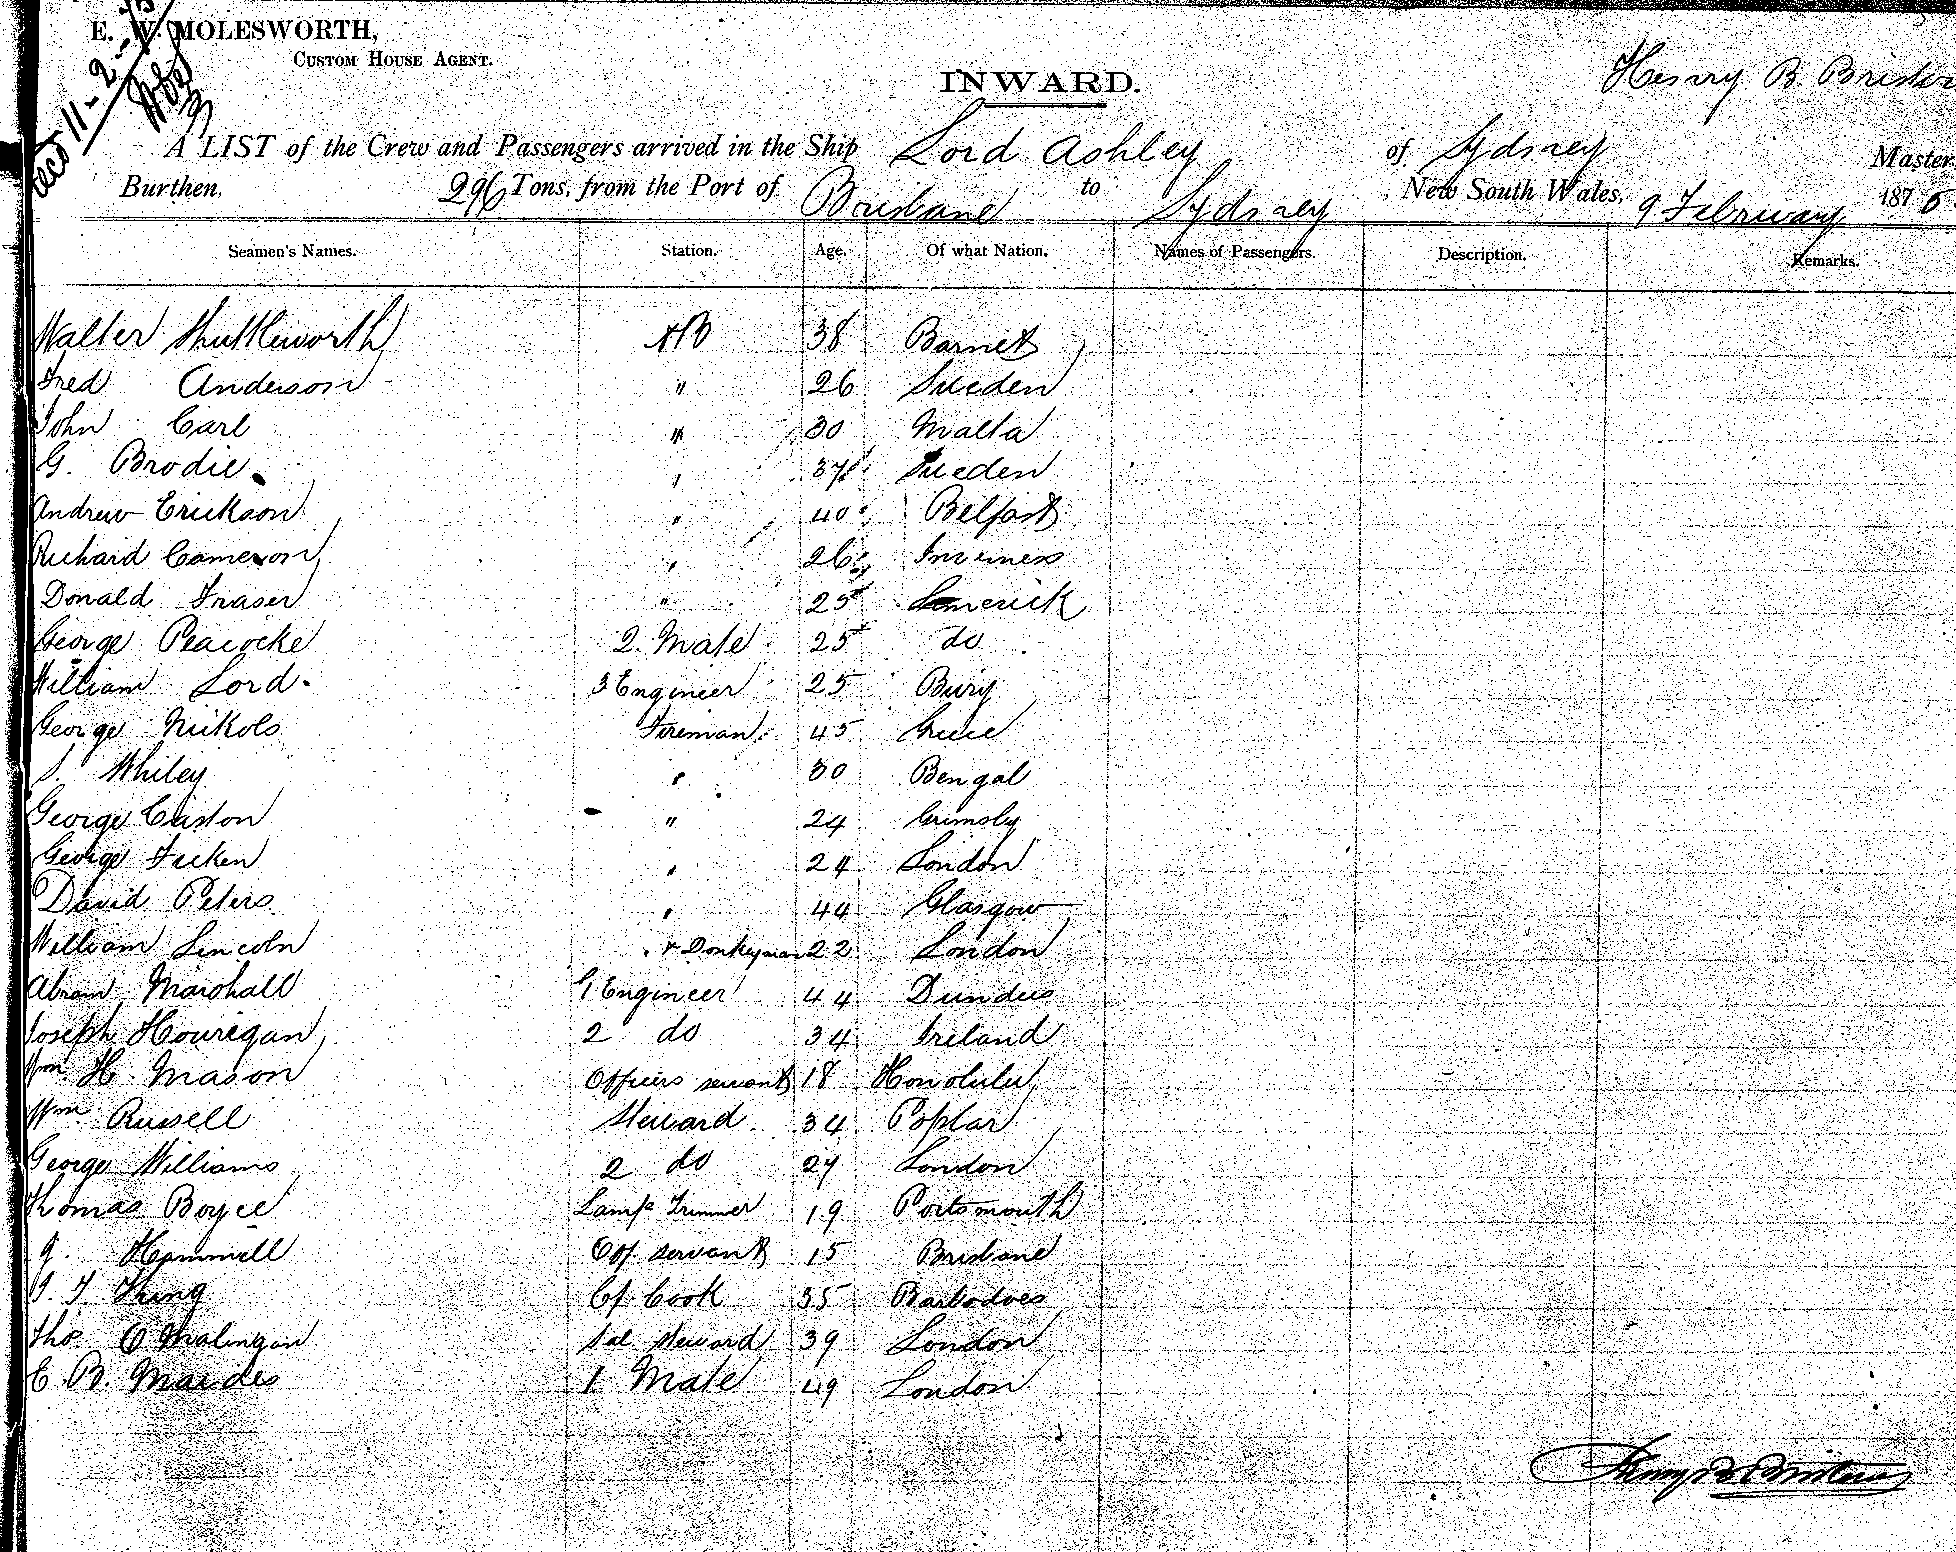 E. W. MOLESWORTH,
CUSTOM HOUSE AGENT.
11-2-
INWARD.
Henry B. Bristow
A LIST of the Crew and Passengers arrived in the Ship Lord Ashley of Sydney Master
Burthen, 296 Tons, from the Port of Brisbane to Sydney New South Wales, 9 February 1876
Seamen's Names. Station. Age. Of what Nation. Names of Passengers. Description. Remarks.
Walter Shuttleworth AB 38 Barnet
Fred Anderson " 26 Sweden
John Carl " 30 Malta
G. Brodie " 37 Sweden
Andrew Erickson " 40 Belfast
Richard Cameron " 26 Inverness
Donald Fraser " 25 Limerick
George Peacocke 2. Mate 25 do
William Lord 3 Engineer 25 Bury
George Nickols Fireman 45 Greece
S. Whiley " 30 Bengal
George Caston " 24 Grimsby
George " 24 London
David Peters " 44 Glasgow
William Lincoln " & Donkeyman 22 London
Abram Marshall 1 Engineer 44 Dundee
Joseph Hourigan 2 do 34 Ireland
Wm H Mason Officers servant 18 Honolulu
Wm Russell Steward 34 Poplar
George Williams 2 do 24 London
Thomas Boyce Lamp Trimmer 19 Portsmouth
Hammill Off servant 15 Brisbane
King Cf. Cook 35 Barbadoes
Thos Steward 39 London
E. B. 1. Mate 49 London
Henry B Bristow